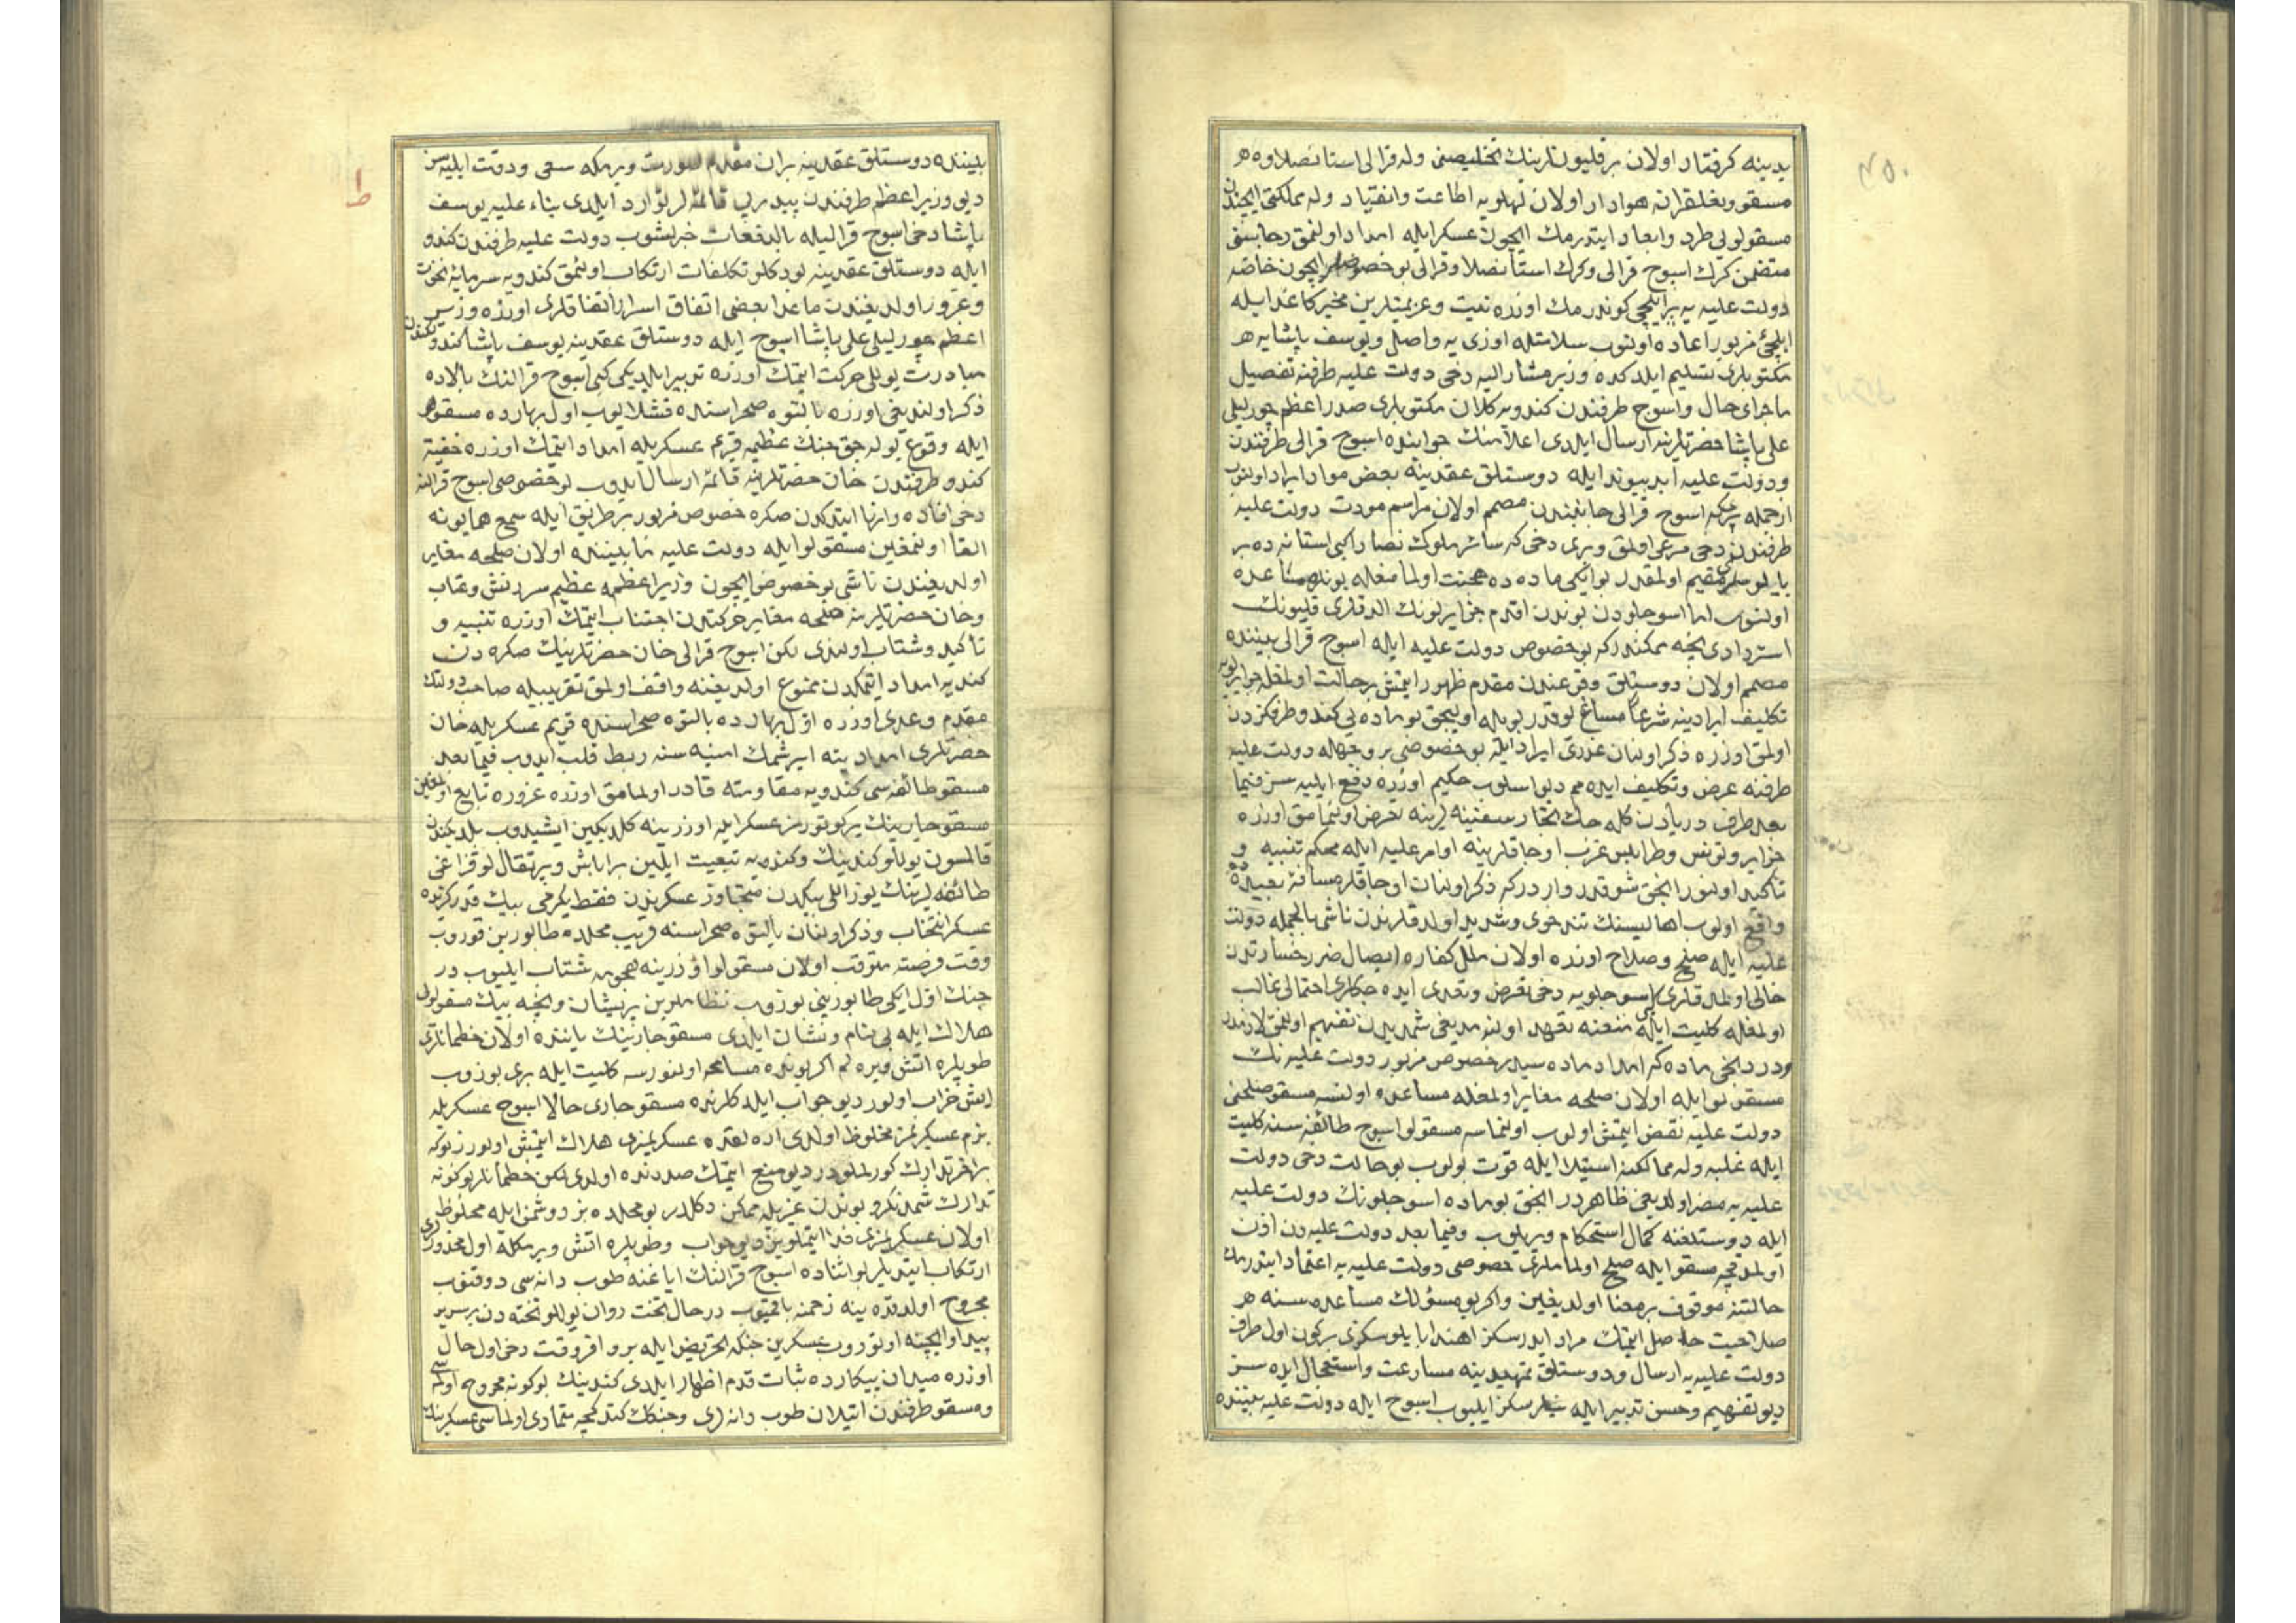 يدينه كرفتار اولان بر قليونلرينك تخليصنى وله قرالى استانصلاوه هر
مسقو و نعلقرانه هوادار اولان لهلويه اطاعت وانقياد وله مملكتى ايچندن
مسقولويى طرد وابعاد ايتدرمك ايچون عسكرايله امداد اولنمق رجاسنى
متضمن كرك اسوج قرالى وكرك استانصلاو قرالى بو خصوصلر ايچون خاصّه
دولت عليه يه بر ايلچى كوندرمك اوزره نيت وعزيمتلرين مخبر كاغد ايله
ايلچئ مزبور اعاده اولنوب سلامتله اوزى يه واصل ويوسف پاشايه هر
مكتوبلرى تسليم ايلدكده وزير مشاراليه دخى دولت عليه طرفنه تفصيل
ماجراى حال واسوج طرفندن كندويه كلان مكتوبلرى صدراعظم چورليلى
على پاشا حضرتلرينه ارسال ايلدى اعلامنك جوابنده اسوج قرالى طرفندن
ودولت عليه ابدپيوند ايله دوستلق عقدينه بعض مواد ايراد اولنوب
ازجمله بركه اسوج قرالى جانبندن مصمم اولان مراسم مودت دولت عليه
طرفندن دخى مرعى اولمق وبرى دخى كه سائر ملوك نصارا كبى استانه ده بر
بايلوسلرى مقيم اولمقدر بو ايكى ماده ده محنت اولمامغله بونده مساعده
اولنوب اما اسوجلودن بوندن اقدم جزايرلونك الدقلرى قليونك
استردادى نيجه ممكندركه بو خصوص دولت عليه ايله اسوج قرالى بيننده
مصمم اولان دوستلق وقوعندن مقدم ظهور ايتمش برحالت اولمغله جزايرلويه
تكليف ايرادينه شرعاً مساغ يوقدر بويله اوليجق بو ماده يى كندو طرفكزدن
اولمق اوزره ذكر اولنان عذرى ايراد ايله بو خصوصى بر وجهله دولت عليه
طرفنه عرض وتكليف ايده مم ديو اسلوب حكيم اوزره دفع ايليه سز فيما
بعد طرف دريادن كله جك تجار سفينه لرينه تعرض اولنمامق اوزره
جزاير وتونس وطرابلس غرب اوجاقلرينه اوامر عليه ايله محكم تنبيه و
تاكيد اولنور انجق شو قدر وار دركه ذكر اولنان اوجاقلر مسافهٔ بعيده ده
واقع اولوب اهاليسنك تندخوى وشديد اولدقلرندن ناشى بالجمله دولت
عليه ايله صلح وصلاح اوزره اولان ملل كفاره ايصال ضرر خسارتدن
خالى اولمدقلرى كبى اسوجلويه دخى تعرض وتعدى ايده جكلرى احتمالى غالب
اولمغله كليت ايله منعنه تعهد اولنه مديغى شمديدن تفهيم اولنمق لازمدر
ودردنجى ماده كه امداد ماده سيدر خصوص مزبور دولت عليه نك
مسقولو ايله اولان صلحه مغاير اولمغله مساعده اولنسه مسقو صلحنى
دولت عليه نقض ايتمش اولوب اولنماسه مسقولو اسوج طائفه سنه كليت
ايله غلبه وله ممالكنه استيلا ايله قوت بولوب بو حالت دخى دولت
عليه يه مضر اولديغى ظاهردر انجق بو ماده اسوجلونك دولت عليه
ايله دوستلغنه كمال استحكام ويريلوب وفيما بعد دولت عليه دن اذن
اولمدقجه مسقو ايله صلح اولماملرى خصوصى دولت عليه يه اعتماد ايتدرمك
حالتنه موقوف برمعنا اولديغين واكر بو مسؤلك مساعده سنه هر
صلاحيت حاصل ايتمك مراد ايدرسكز اهندا بايلوسكزى بركون اول طرف
دولت عليه يه ارسال ودوستلق تمهيدينه مسارعت واستعجال ايده سز
ديو تفهيم وحسن تدبير ايله ايليوب اسوج ايله دولت عليه بيننده
بيننده دوستلق عقدينه بران مقدم صورت ويرمكه سعى ودقت ايليه سز
ديو وزير اعظم طرفندن پيدرپى قائمه لر توارد ايلدى بناء عليه يوسف
پاشا دخى اسوج قراليله بالدفعات خبرلشوب دولت عليه طرفندن كندو
ايله دوستلق عقدينه بودكلو تكلفات ارتكاب اولنمق كندويه سرمايهٔ نخوت
وغرور اولديغندن ماعدا بعضى اتفاق اسرار اتفاقلرى اوزره وزير
اعظم چورليلى على پاشا اسوج ايله دوستلق عقدينه يوسف پاشا كندولكندن
مبادرت يوللى حركت ايتمك اوزره تدبير ايلديكى كبى اسوج قرالنك بالاده
ذكر اولنديغى اوزره بالتوه صحراسنده قشلايوب اول بهارده مسقولر
ايله وقوع بوله جق جنك عظيمه قريم عسكريله امداد ايتمك اوزره خفيةً
كندو طرفندن خان حضرتلرينه قائمه ارسال ايدوب بو خصوصى اسوج قرالنه
دخى افاده وانها ايتدكدن صكره خصوص مزبور بر طريق ايله سمع همايونه
القا اولنمغين مسقولو ايله دولت عليه مابيننده اولان صلحه مغاير
اولديغندن ناشى بو خصوص ايچون وزير اعظمه عظيم سرزنش وعتاب
وخان حضرتلرينه صلحه مغاير حركتدن اجتناب ايتمك اوزره تنبيه و
تاكيد وشتاب اولندى لكن اسوج قرالى خان حضرتلرينك صكره دن
كنديه امداد ايتمكدن ممنوع اولديغنه واقف اولمق تقريبيله صاحب دولتك
مقدم وعدى اوزره اول بهارده بالتوه صحراسنده قريم عسكريله خان
حضرتلرى امدادينه ايرشمك امنيه سنه ربط قلب ايدوب فيما بعد
مسقو طائفه سى كندويه مقاومته قادر اولمامق اوزره غروره تابع اولمغين
مسقو چارينك بركوتورمز عسكر ايله اوزرينه كلديكين ايشيدوب بلديكندن
قالمسون يوللو كندينك وكندويه تبعيت ايلين براباش وپرتقال لو قزاغى
طائفه لرينك يوز اللى بيكدن متجاوز عسكرندن فقط يكرمى بيك قدر كزيده
عسكر انتخاب وذكر اولنان بالتوه صحراسنه قريب محلده طابورين قوروب
وقت فرصته مترقب اولان مسقولو اوزرينه هجومه شتاب ايليوب در
جنك اول ايكى طابورينى بوزوب نظاملرين پريشان ونيجه بيك مسقولويى
هلاك ايله بى نام ونشان ايلدى مسقو چارينك ياننده اولان خطمانلرى
طوپلره اتش ويره لم اكر بونده مسامحه اولنورسه كليت ايله بزى بوزوب
ايش خراب اولور ديو جواب ايلدكلرنده مسقو چارى حالا اسوج عسكريله
بزم عسكريمز مخلوط اولدى اره لقده عسكريمزى هلاك ايتمش اولورز بوكه
براخر تدارك كورلملودر ديو منع ايتمك صددنده اولدى لكن خطمانلر بوكونه
تدارك شمدنكرو بوندن غيريله ممكن دكلدر بو محلده بز دوشمن ايله مخلوط
اولان عسكريمزى فدا ايتملويز ديو جواب وطوپلره اتش ويرمكله اول محذورى
ارتكاب ايتديلر بو اثناده اسوج قرالنك اياغنه طوپ دانه سى دوقنوب
مجروح اولدقده ينه زخمنه باقميوب درحال تخت روان يوللو تخته دن برسرير
پيدا وايچنه اوتوروب عسكرين جنكه تحريض ايله بر وافر وقت دخى اول حال
اوزره ميدان پيكارده ثبات قدم اظهار ايلدى كندينك بوكونه مجروح اولمه سى
ومسقو طرفندن اتيلان طوپ دانه لرى وجنكك كتدكجه متمادى اولماسى عسكرينك
ط